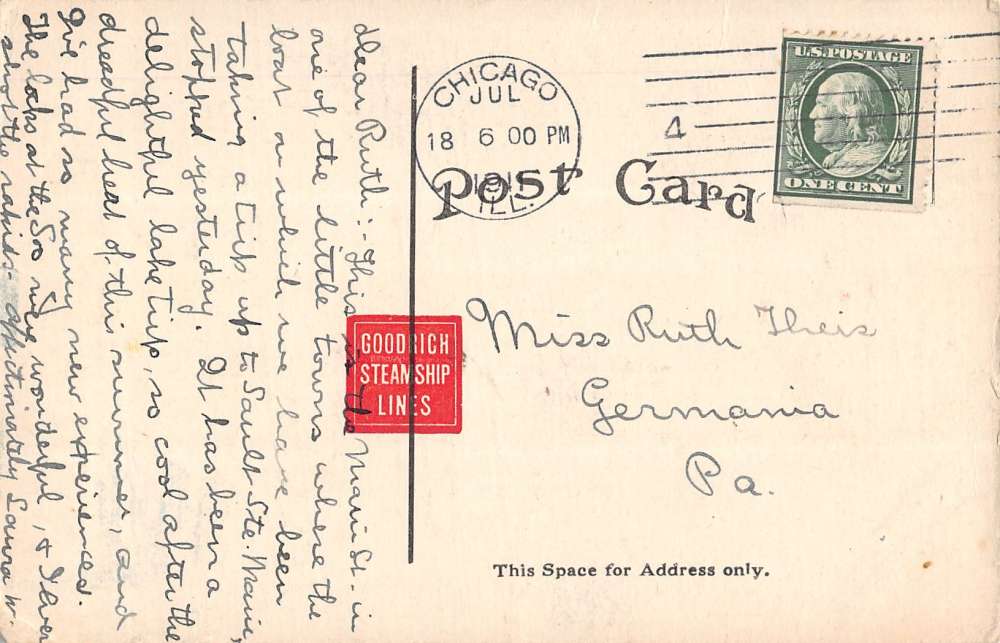 Dear Ruth:- This is the Main St. in
one of the little towns where the
boat on which we have been
taking a trip up to Sault Ste. Marie,
stopped yesterday. It has been a
delightful lake trip, so cool after the
dreadful heat of this summer, and
I've had so many new experiences.
The locks at the Soo were wonderful, & I
shot the rapids- Affectionately Laura W.
CHICAGO
JUL
18 6 00 PM
ILL.
4
U.S. POSTAGE
ONE CENT
Post Card
GOODRICH
STEAMSHIP
LINES
Miss Ruth Theis
Germania
Pa.
This Space for Address only.